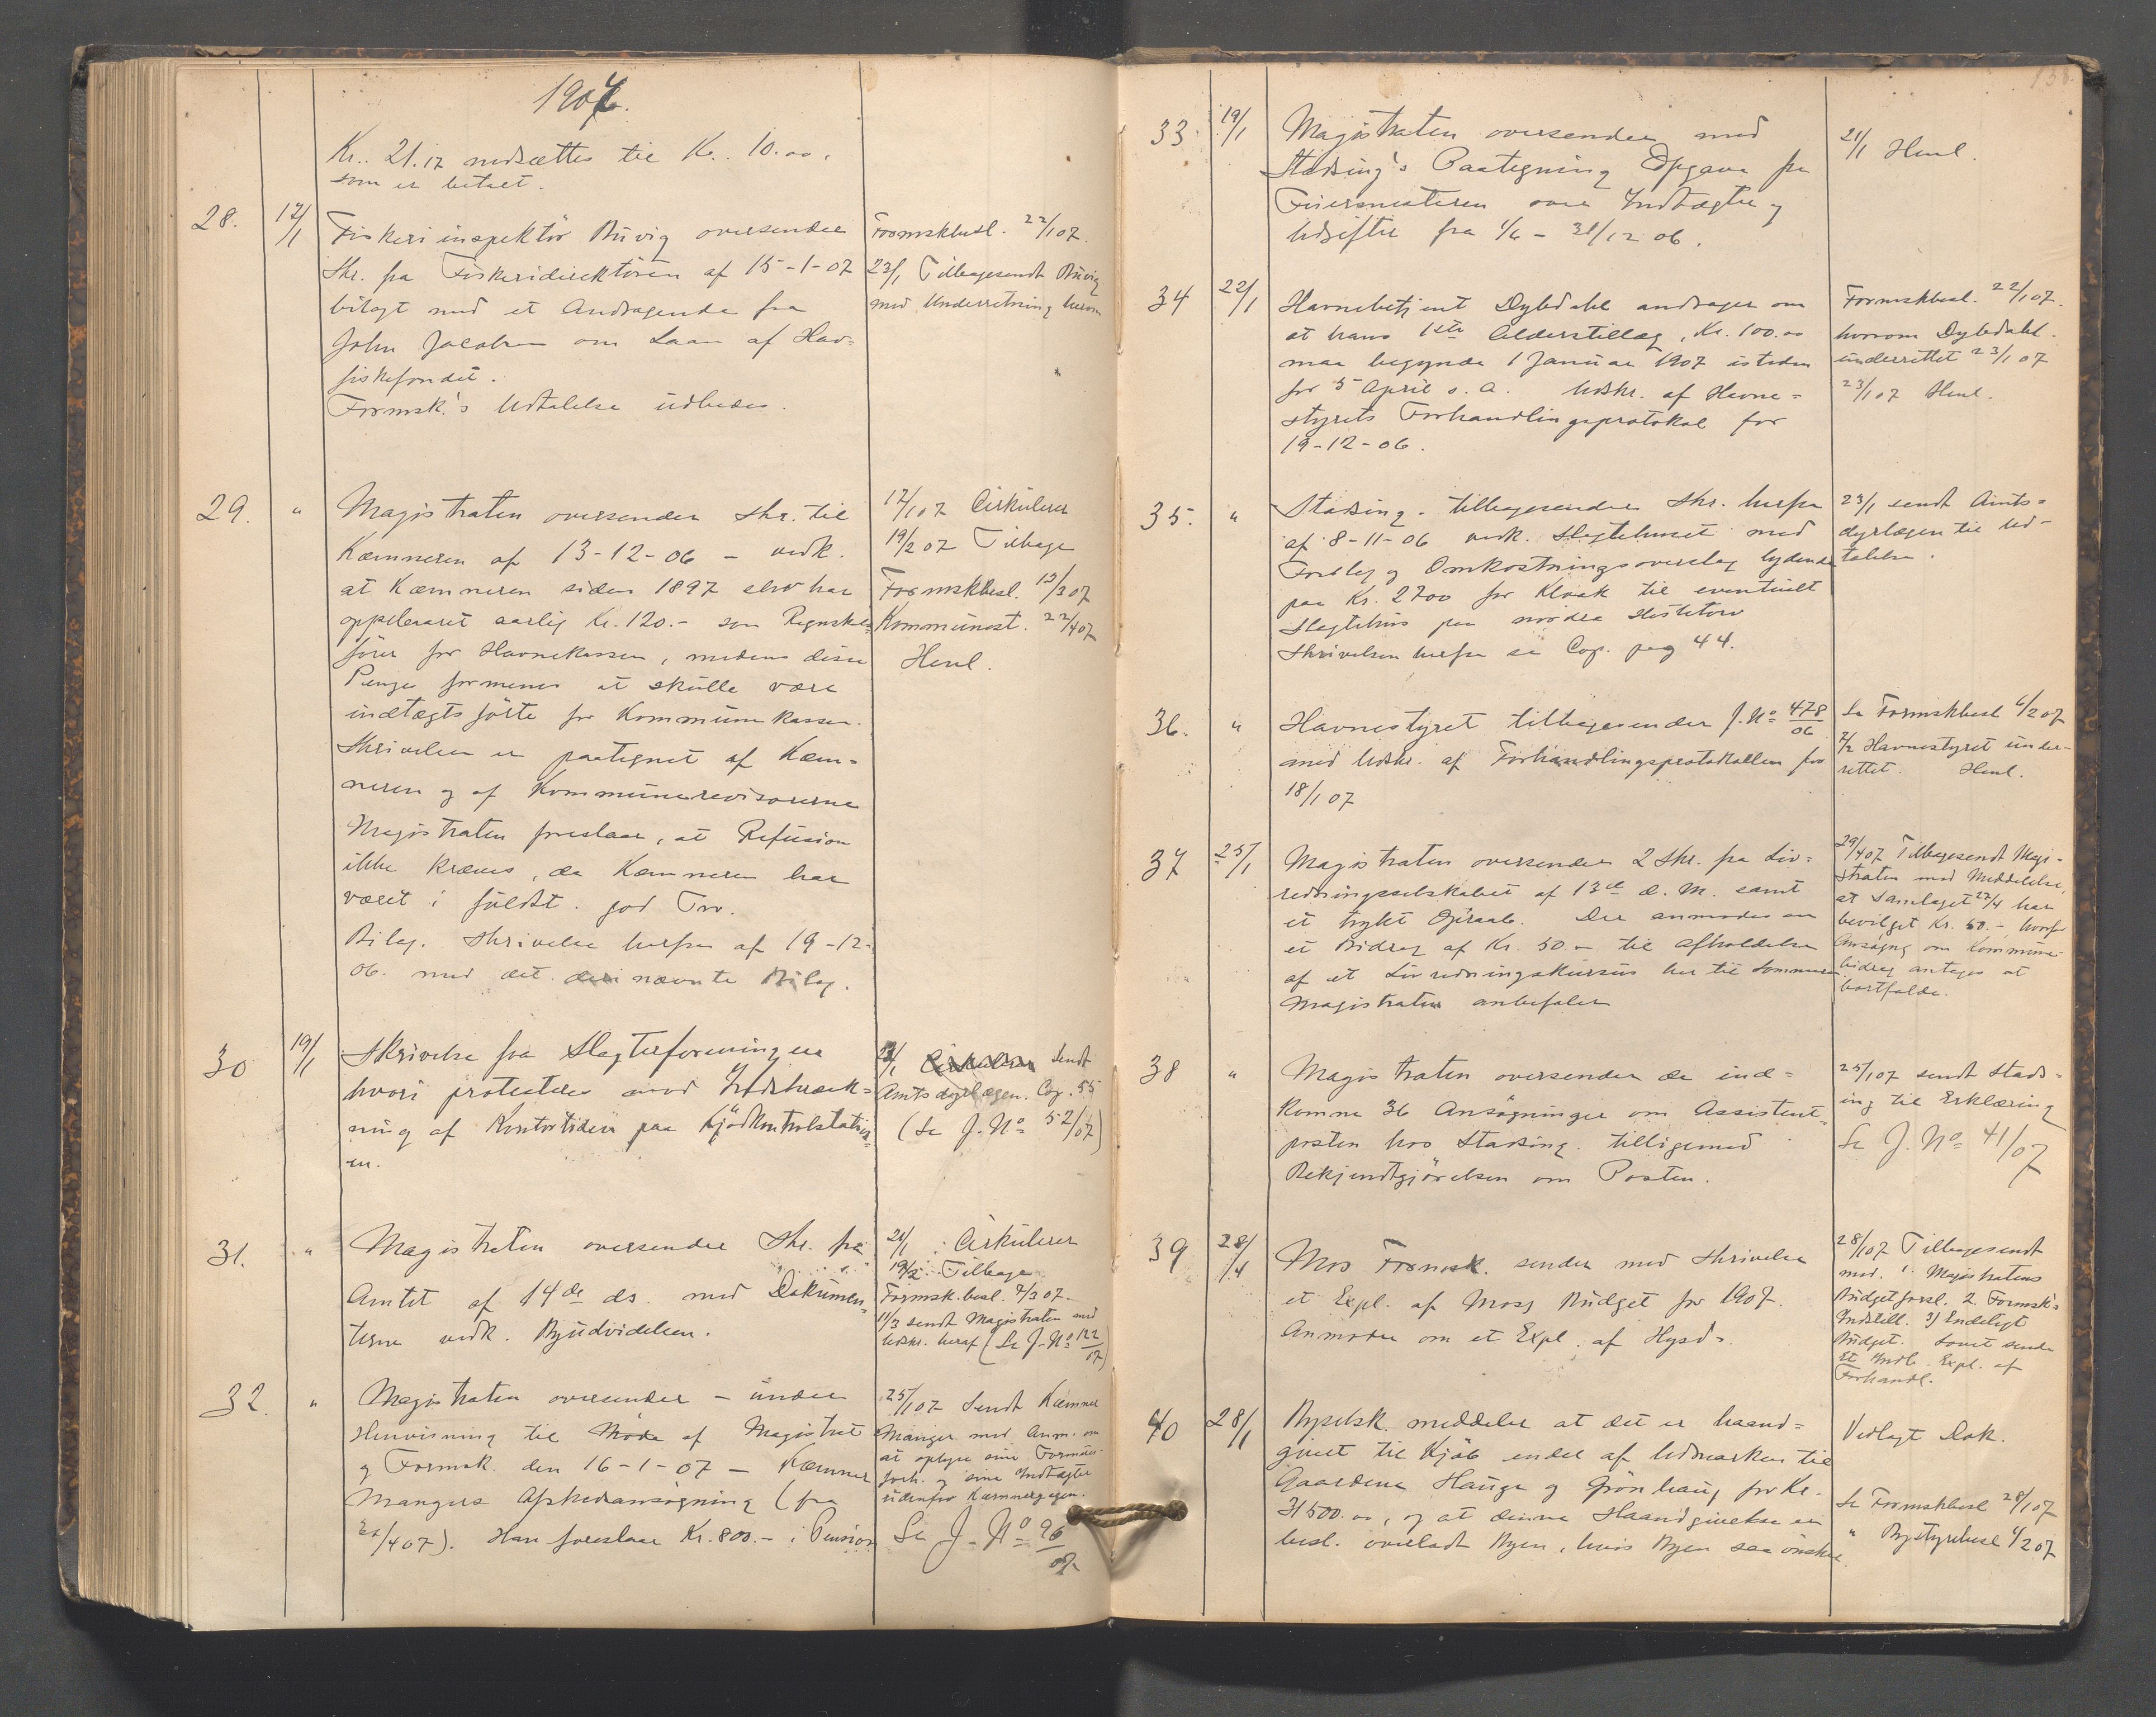 1907.
Kr. 21.17 nedsættes til Kr. 10.00,
som er betalt.
28. 17/1 Fiskeriinspektör Buvig oversender
Skr. fra Fiskeridirektören af 15-1-07
bilagt med et Andragende fra
John Jacobsen om Laan af Hav-
fiskefondet.
Formsk.'s Udtalelse udbedes.
Formskbesl. 22/1 07.
23/1 Tilbagesendt Buvig
med Underretning herom
29. " Magistraten oversender Skr. til
Kæmneren af 13-12-06 – vedk.
at Kæmneren siden 1897 selv har
oppebaaret aarlig Kr. 120.- som Regnskabs-
förer for Havnekassen, medens disse
Penge formenes at skulle være
indtægtsförte for Kommunekassen.
Skrivelsen er paategnet af Kæm-
neren og af Kommunerevisorerne
Magistraten foreslaar, at Refusion
ikke kræves, da Kæmneren har
været i fuldst. god Tro.
Bilag. Skrivelse herfra af 19-12-
06. med det deri nævnte Bilag.
17/1 07 Cirkulerer
19/2 07 Tilbage
Formskbesl. 13/3 07
Kommunest. 22/4 07
Henl.
30 19/1 Skrivelse fra Slagterforeningen
hvori protesteres mod Indskrænk-
ning af Kontortiden paa Kjödkontrolstation-
en.
23/1 Cirkulerer Sendt
Amtsdyrlægen. Cop. 55
(Se J. No 52/07)
31. " Magistraten oversender Skr. fra
Amtet af 14de ds. med Dokumen-
terne vedk. Byudvidelsen.
21/1 Cirkulerer
19/2 Tilbage
Formsk.besl. 7/3 07.
11/3 sendt Magistraten med
Udskr. heraf (Se J. No 122/07)
32. " Magistraten oversender – under
Henvisning til Möde af Magistrat
og Formsk. den 16-1-07 – Kæmner
Mangers Afskedsansögning (fra
/4 07). Han foreslaar Kr. 800.- i Pension
25/1 07 Sendt Kæmner
Manger med Anm. om
at opgive sine Formues-
forh. og sine Indtægter
udenfor Kæmnergagen.
Se J. No 96/07
33. 19/1 Magistraten oversender med
Stadsing's Paategning Opgave fra
Fiiermesteren over Indtægter og
Udgifter fra 1/4 – 31/12 06.
21/1 Henl.
34 22/1 Havnebetjent Dybdahl andrager om
at hans 1ste Alderstillæg, Kr. 100.00
maa begynde 1 Januar 1907 istedenfor
for 5 April s. A. Udskr. af Havne-
styrets Forhandlingsprotokol for
19-12-06.
Formskbesl. 22/1 07.
hvorom Dybdahl.
underrettet 23/1 07
23/1 07 Henl.
35. " Stadsing. tilbagesender Skr. herfra
af 8-11-06 vedk. Slagtehuset med
Forslag og Omkostningsoverslag lydende
paa Kr. 2700 for Kloak til eventuelt
Slagtehus paa nordre Hestetorv
Skrivelsen herfra se Cop. pag 44.
23/1 sendt Amts-
dyrlægen til Ud-
talelse.
36. " Havnestyret tilbagesender J. No 478/06
med Udskr. af Forhandlingsprotokollen for
18/1 07
Se Formskbesl 6/2 07
7/2 Havnestyret under-
rettet. Henl.
37 25/1 Magistraten oversender 2 Skr. fra Liv-
redningsselskabet af 13de d. M. samt
et trykt Opraab. Der anmodes om
et Bidrag af Kr. 50.– til Afholdelse
af et Livredningskursus her til Sommeren
Magistraten anbefaler
29/4 07 Tilbagesendt Magi-
straten med Meddelelse,
at Samlaget 27/4 har
bevilget Kr. 50.-, hvorfor
Ansögng om Kommune-
bidrag antages at
bortfalde.
38 " Magistraten oversender de ind-
komne 36 Ansögninger om Assistent-
posten hos Stadsing. tilligemed
Bekjendtgjörelsen om Posten.
25/1 07 sendt Stads-
ing til Erklæring
Se J. No 41/07
39 28/1 Mos Formsk. sender med Skrivelse
et Expl. af Moss Budget for 1907.
Anmoder om et Expl. af Hgsds.
28/1 07 Tilbagesendt
med. 1. Magistratens
Budgetforsl. 2. Formsk's
Indstill. 3) Endeligt
Budget. Lovet sende
Et Indb. Expl. af
Forhandl.
40 28/1 Byselsk. meddeler at det er haand-
givet til Kjöb endel af Udmarken til
Gaardene Hauge og Grönhaug for Kr.
31500.00, og at denne Haandgivelse er
besl. overladt Byen, hvis Byen saa önsker
Vedlagt Dok.
Se Formskbesl 28/1 07
" Bystyrebesl 6/2 07